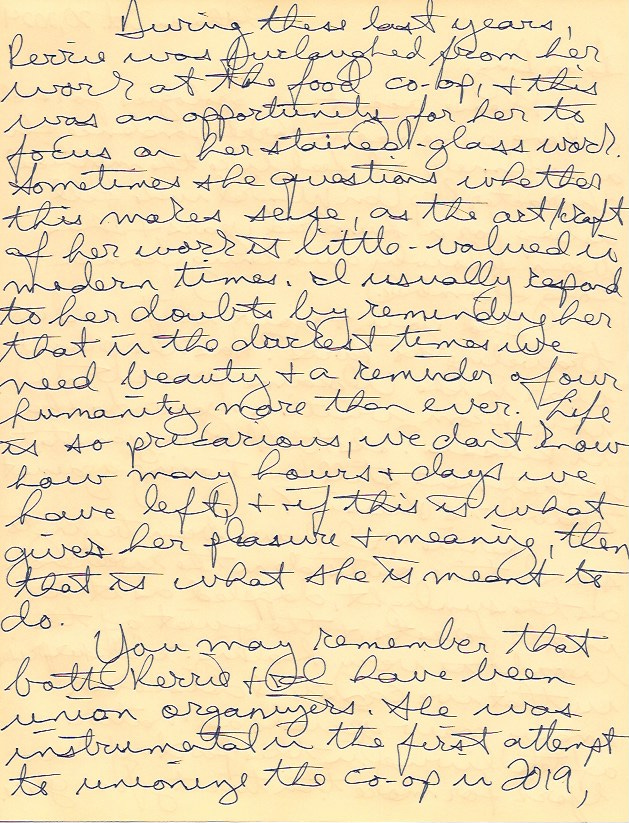 During these last years,
Kerrie was furlaughed from her
work at the food co-op, + this
was an opportunity for her to
focus on her stained-glass work.
Sometimes she questions whether
this makes sense, as the art/craft
of her work is little-valued in
modern times. I usually respond
to her doubts by reminding her
that in the darkest times we
need beauty + a reminder of our
humanity more than ever. Life
is so precarious, we don't know
how many hours + days we
have left, + if this is what
gives her pleasure + meaning, then
that is what she is meant to
do.
You may remember that
both Kerrie + I have been
union organizers. She was
instrumental in the first attempt
to unionize the co-op in 2019,